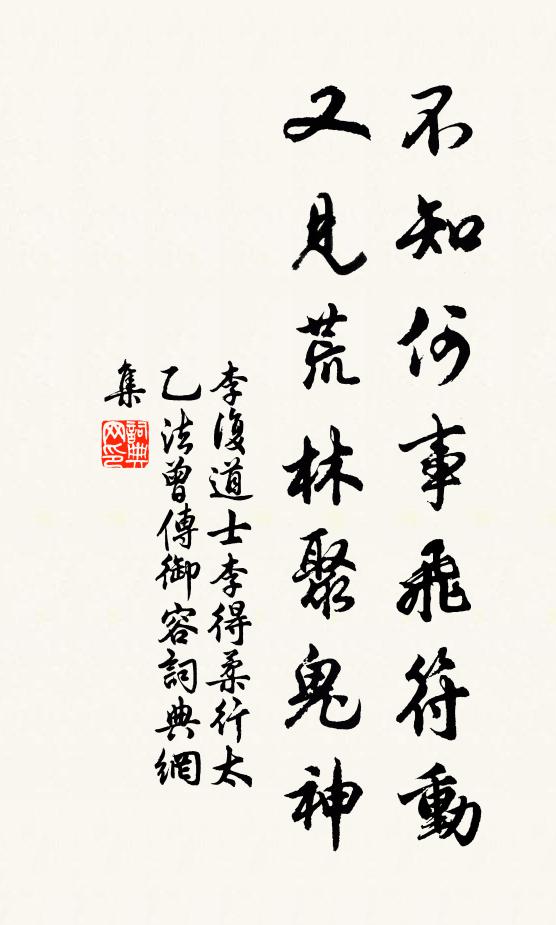 不知何事飛符動
又見荒林聚鬼神
李復道士李得柔行太
乙法曾傳御容詞典網
集
詞典網印